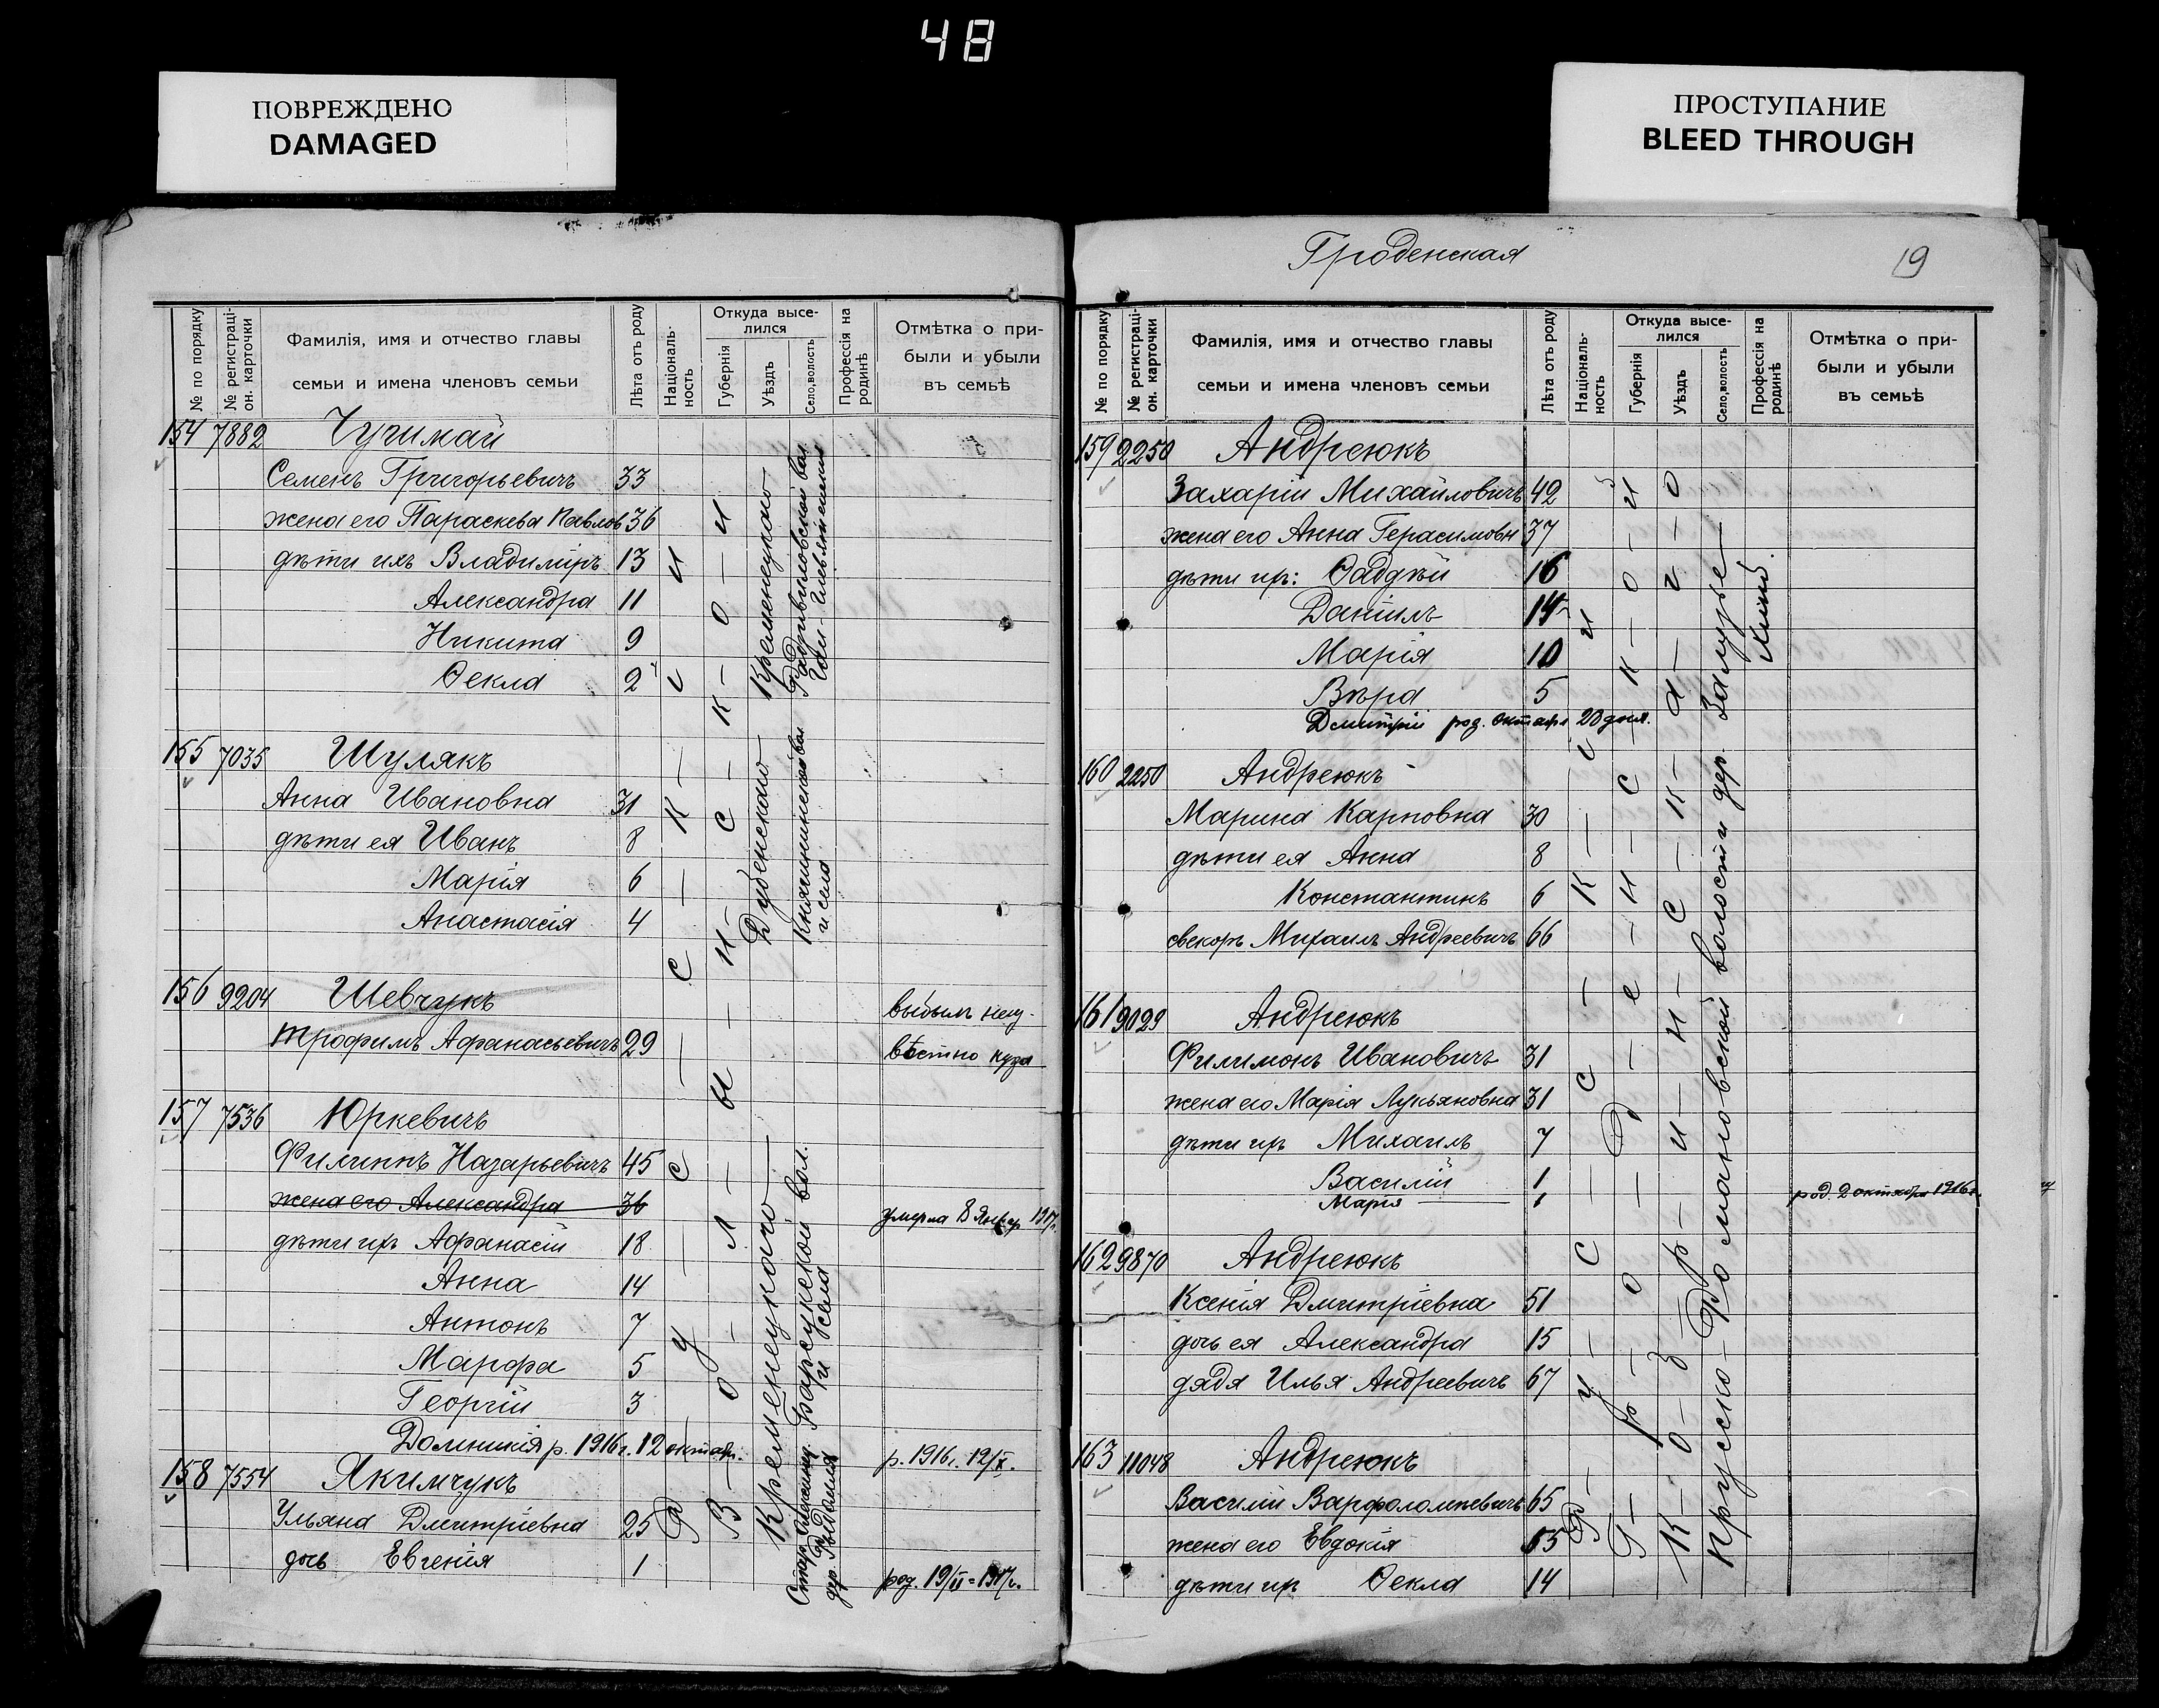 48
ПОВРЕЖДЕНО
DAMAGED
ПРОСТУПАНИЕ
BLEED THROUGH
№ по порядку
№ регистраціон. карточки
Фамилія, имя и отчество главы
семьи и имена членовъ семьи
Лѣта отъ роду
Національность
Откуда выселился
Губернія
Уѣздъ
Село, волость
Профессія на родинѣ
Отмѣтка о прибыли и убыли въ семьѣ
154 7882 Чугимай
Семенъ Григорьевичъ 33
жена его Параскева Павлов 36
дѣти ихъ Владиміръ 13
Александра 11
Никита 9
Ѳекла 2
155 7035 Шулякъ
Анна Ивановна 31
дѣти ея Иванъ 8
Марія 6
Анастасія 4
156 9204 Шевчукъ
Трофимъ Афанасьевичъ 29
выбылъ неизвѣстно куда
157 7536 Юркевичъ
Филиппъ Назарьевичъ 45
жена его Александра 36
умерла 8 Янв 1917г.
дѣти ихъ Афанасій 18
Анна 14
Антонъ 7
Марфа 5
Георгій 3
Домникія р. 1916г. 12 октяб.
р. 1916г. 12/X.
158 7554 Якимчукъ
Ульяна Дмитріевна 25
дочь Евгенія 1
род. 19/II-1917г.
Русскій
Волынской
Кременецкаго
Радзивиловской вол.
Дубенскаго
Княгининской вол
и села
Кременецкаго
Барсуковской вол.
и села
Гроденская
19
№ по порядку
№ регистраціон. карточки
Фамилія, имя и отчество главы
семьи и имена членовъ семьи
Лѣта отъ роду
Національность
Откуда выселился
Губернія
Уѣздъ
Село, волость
Профессія на родинѣ
Отмѣтка о прибыли и убыли въ семьѣ
159 2250 Андреюкъ
Захарій Михайловичъ 42
жена его Анна Герасимовн 37
дѣти их: Фаддѣй 16
Даніилъ 14
Марія 10
Вѣра 5
Дмитрій род. октября 20 дня.
160 2250 Андреюкъ
Марина Карповна 30
дѣти ея Анна 8
Константинъ 6
свекоръ Михаилъ Андреевичъ 66
161 9029 Андреюкъ
Филимонъ Ивановичъ 31
жена его Марія Лукьяновна 31
дѣти их Михаилъ 7
Василій 1
Марія 1
род. 2 октября 1916г.
162 9870 Андреюкъ
Ксенія Дмитріевна 51
дочь ея Александра 15
дядя Илья Андреевичъ 67
163 11048 Андреюкъ
Василій Варфоломеевичъ 65
жена его Евдокія 55
дѣти их Ѳекла 14
Русскій
Гродненской
Кобринскаго
волости дер. Залузье